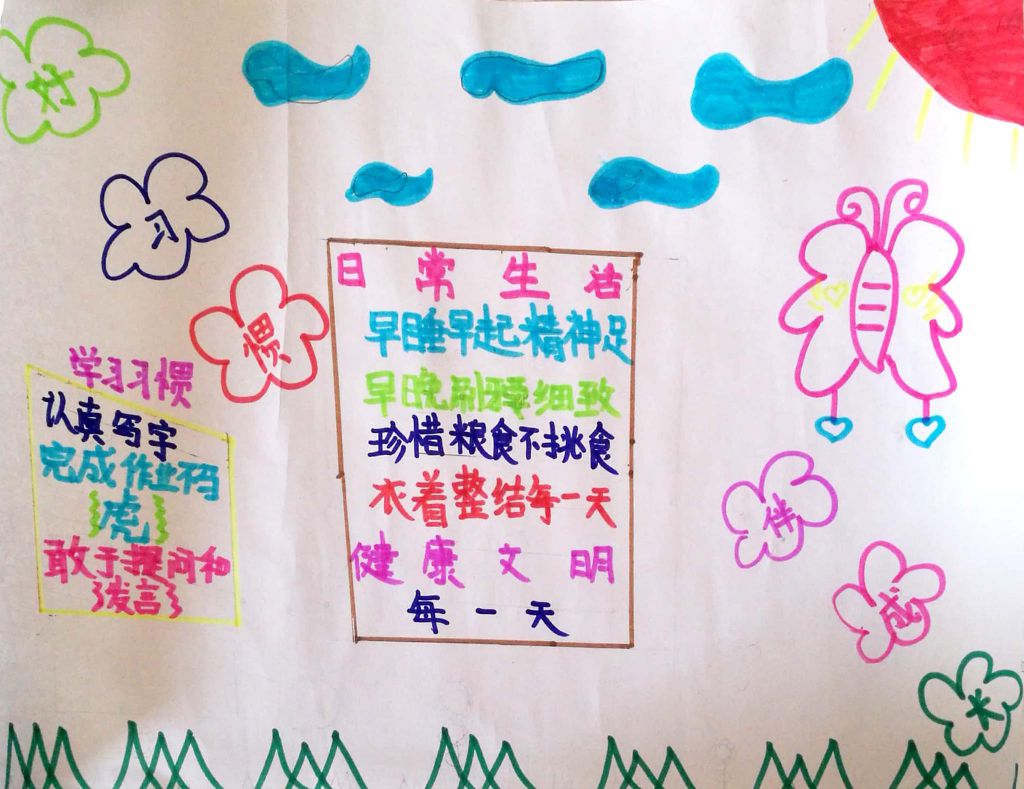 好
习
惯
学习习惯
认真写字
完成作业码
虎
敢于提问和
发言
日常生活
早睡早起精神足
早晚刷牙要细致
珍惜粮食不挑食
衣着整结每一天
健康文明
每一天
伴
成
长